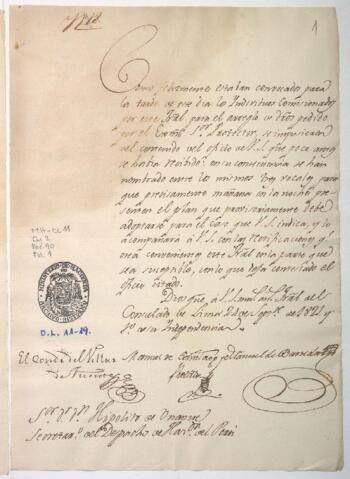 1
Como felizmente estaban convocados para
la tarde de este dia los Individuos comisionados
por este Tral para el arreglo de dros pedido
por el Exmo Sor Protector, se impusieron
del contenido del oficio de V.S. que poco antes
se habia recibido: en su consecuencia se han
nombrado entre los mismos tres vocales para
que precisamente mañana en la noche pre-
senten el plan que provisoriamente debe
adoptarse para el caso que V.S. indica, y lo
acompañará á V.S. con las rectificaciones q.
crea convenientes este Tral en la parte que
sea susceptible, con lo que deja contestado el
oficio citado.
Dios gue. á V.S. ms. as. Tral del
Consulado de Lima de Sepre. de 1821 y
1o. de su Independencia
El Conde de Villar
de Fuente
Manuel de
Manuel de Barreda
Sor. Dr. Dn. Hipolito de Unanue
Secretaro. del Despacho de Hacda. del Perú
MH-OL 11
Ca. 2
Do. 90
Fol. 1
O.L. 11-19.